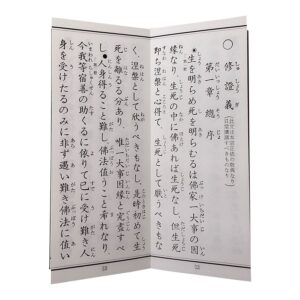 ○修證義
第一章 總序
●生を明らめ死を明らむるは佛家一大事の因
縁なり、生死の中に佛あれば生死なし、但生死
即ち涅槃と心得て、生死として厭うべきもな
く、涅槃として欣うべきもなし、是時初めて生
死を離るる分あり、唯一大事因縁と究盡すべ
し。●人身得ること難し、佛法値うこと希れなり、
今我等宿善の助くるに依りて已に受け難き人
身を受けたるのみに非ず遇い難き佛法に値い